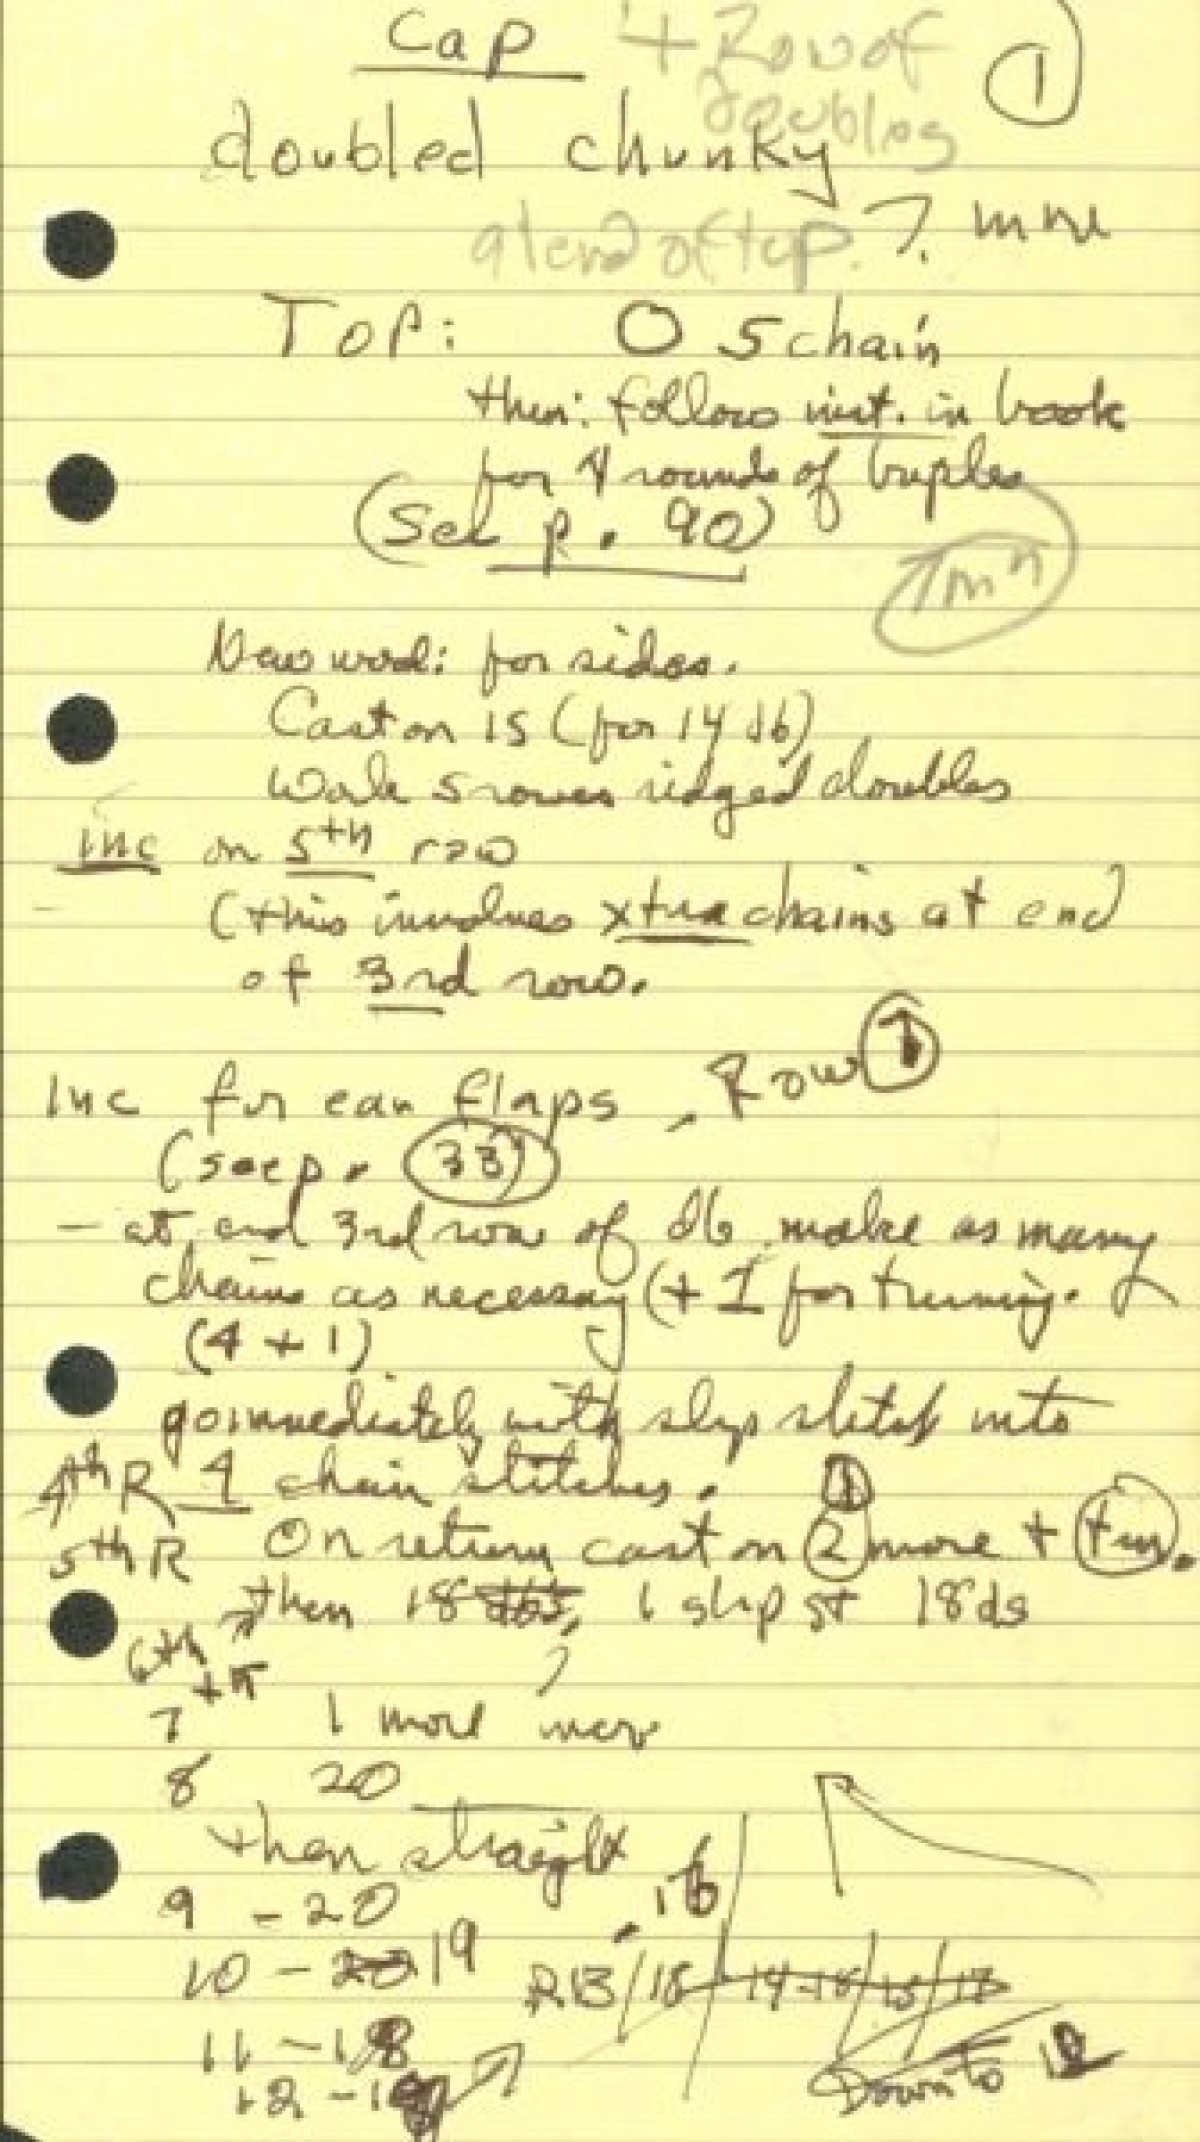 Cap + Row of doubles ①
doubled chunky
at end of top. ? mm
Top: O 5 chain
then: follow inst. in book
for 4 rounds of triples
(See p. 90)
New wool: for sides.
Cast on 15 (for 14 db)
Work 5 rows ridged doubles
inc on 5th row
(this involves xtra chains at end
of 3rd row.
Inc for ear flaps, Row
(see p. 33)
- at end 3rd row of db make as many
chains as necessary (+ 1 for turning.
(4 + 1)
go immediately with slip stitch into
4th R 4 chain stitches.
5th R On return cast on 2 more + turn.
then 18 dbs, 1 slip st 18 ds
6th ?
7 1 more incr
8 20
then straight
9 - 20
10 - 20 19
R13/18 16
14-18/15/17
11 - 18
12 - 18
Down to 12